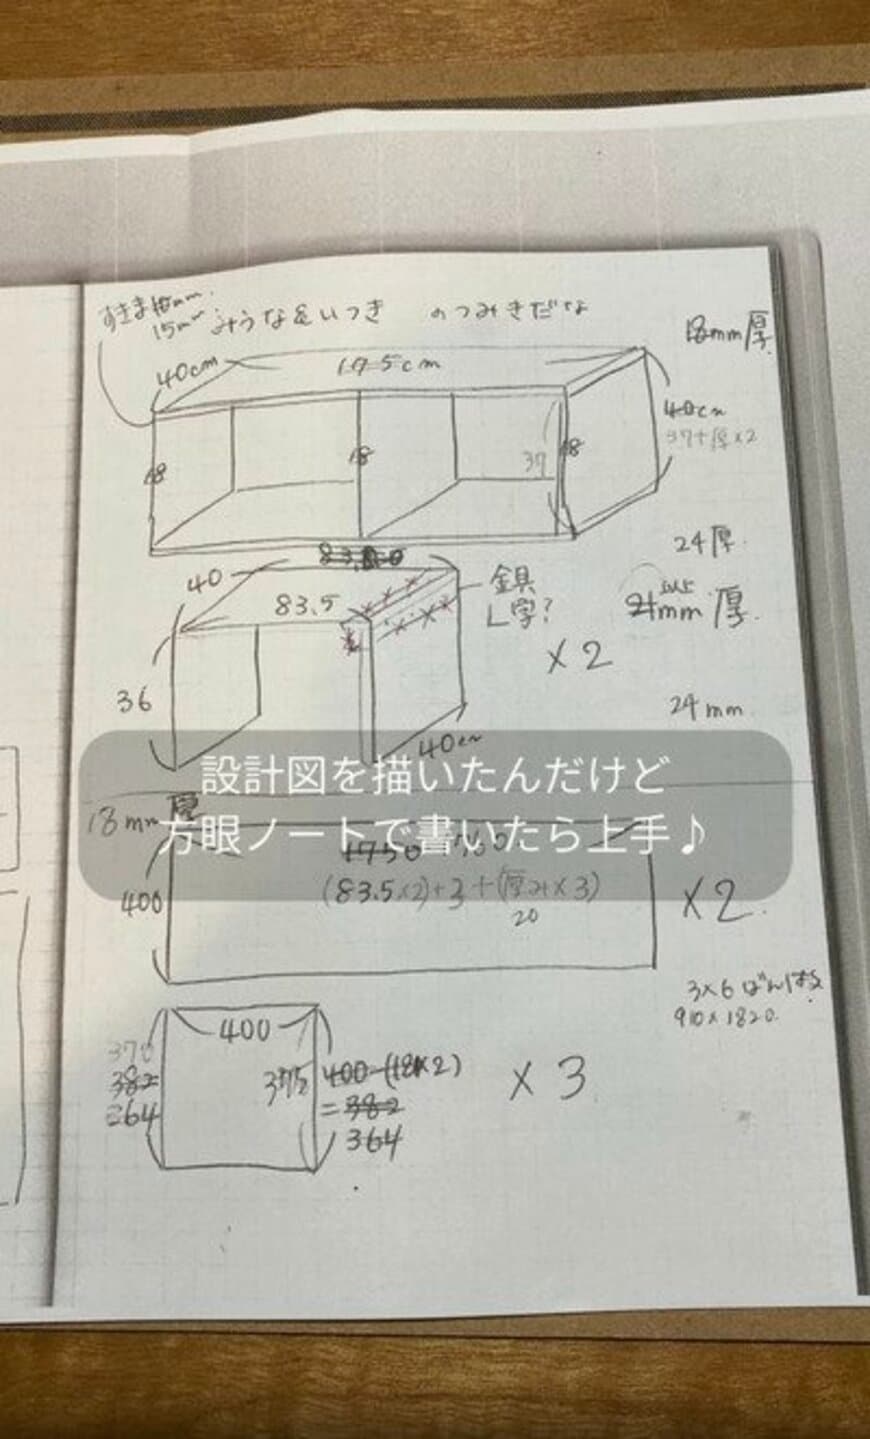 すきま
15mm
みうな&いつき のつみきだな
18mm厚
40cm
175cm
40cm
37+厚×2
18
18
37
18
24厚
40
83.5
金具
L字?
以上
mm厚
×2
36
24mm
40cm
設計図を描いたんだけど
方眼ノートで書いたら上手♪
18mm厚
1750
400
(83.5×2)+3+(厚み×3)
20
×2
3×6ばんは
910×1820
400
370
382
364
375
400-(18×2)
=382
364
×3